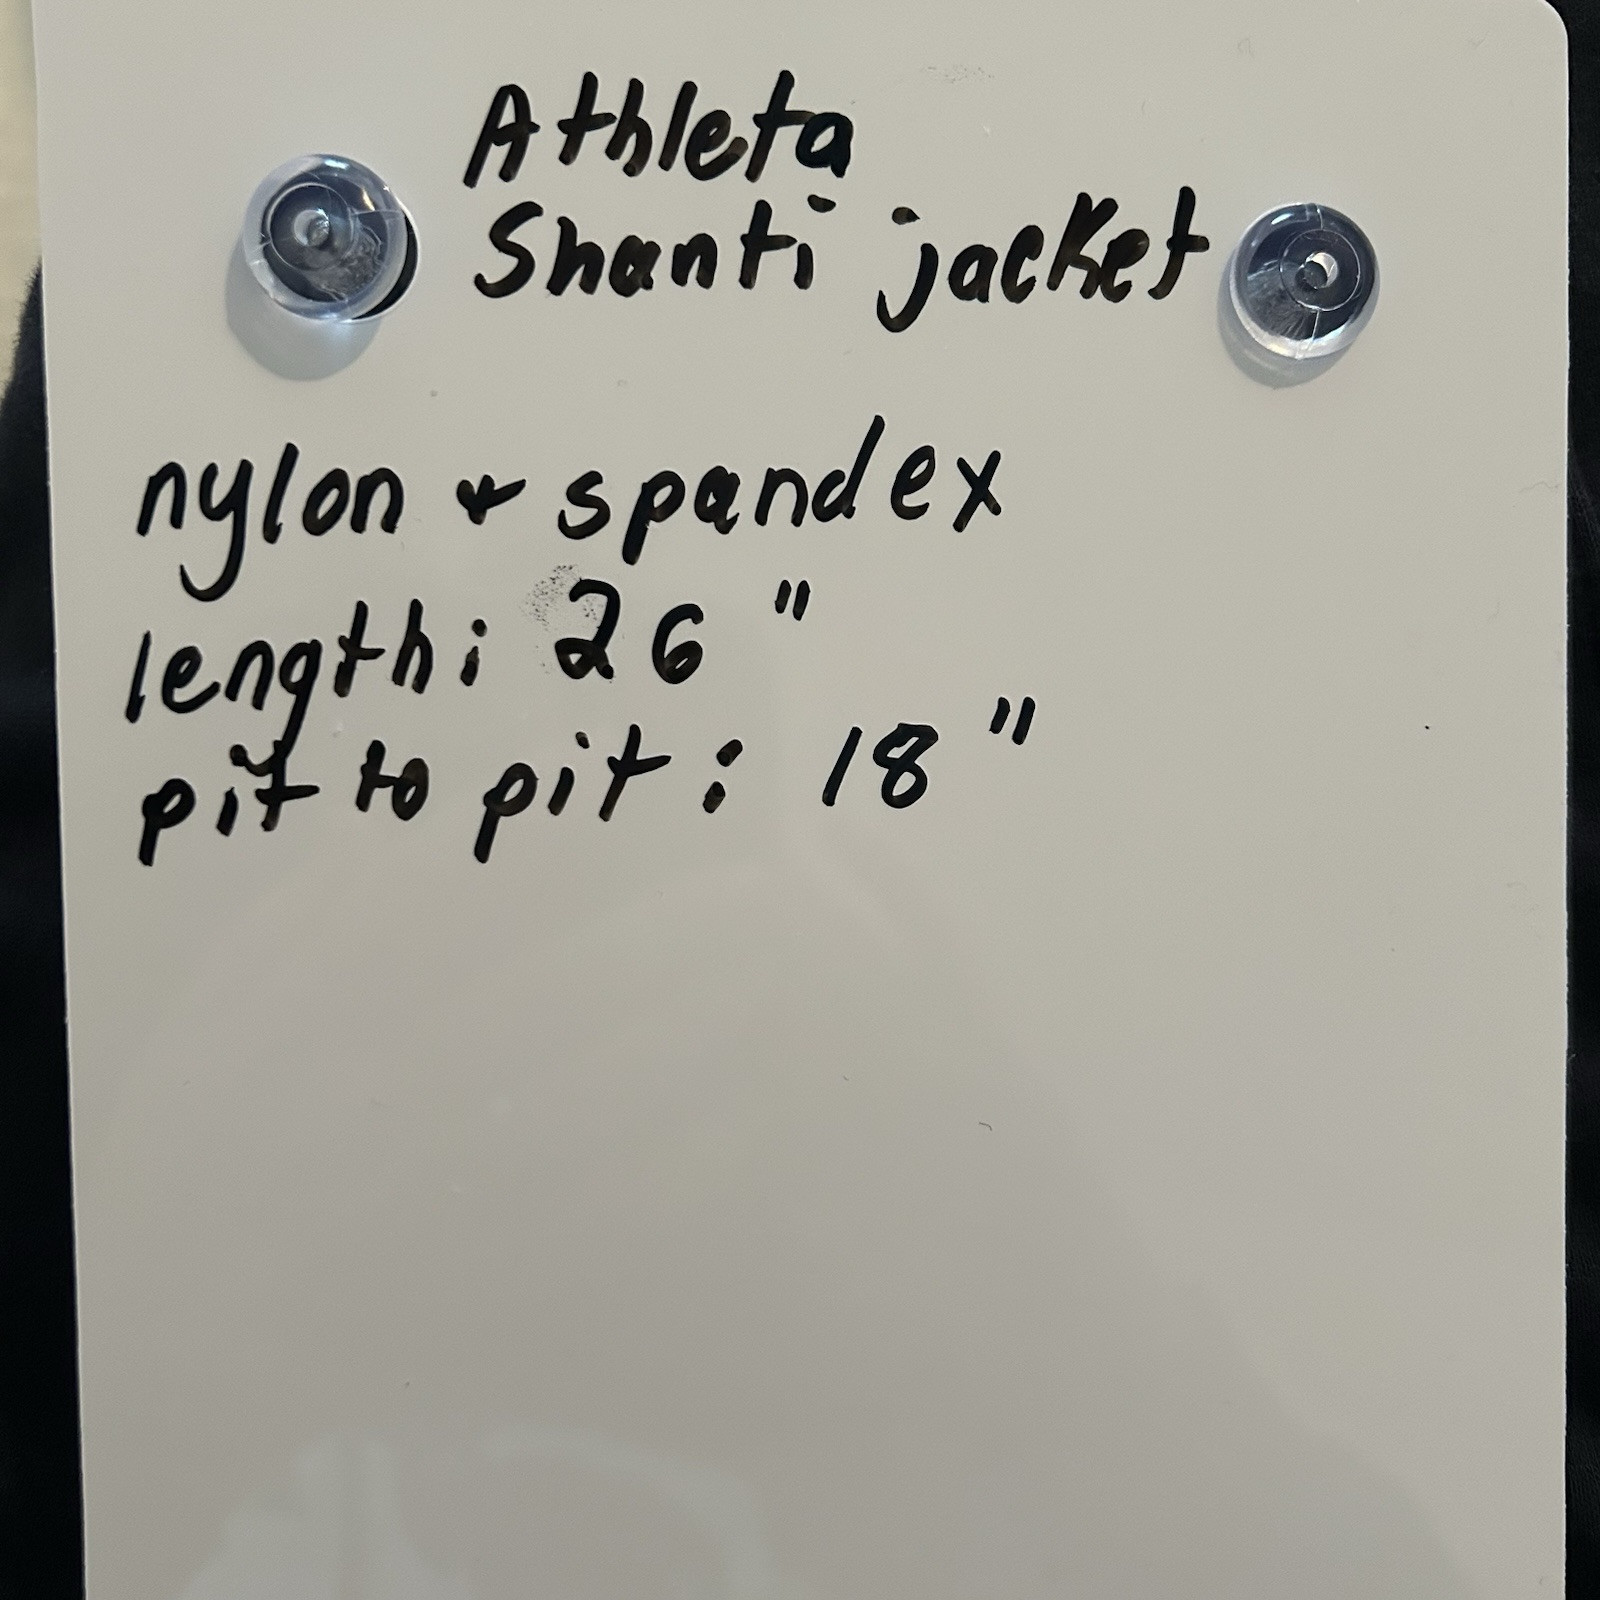 Athleta
Shanti jacket
nylon & spandex
length: 26"
pit to pit: 18"